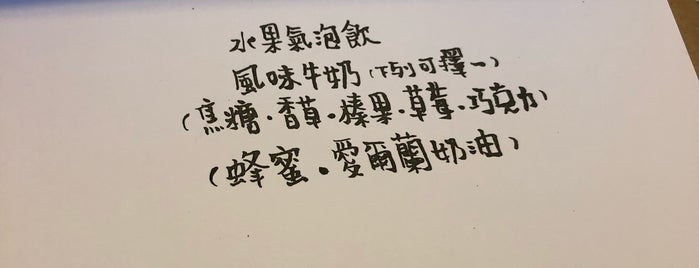 水果氣泡飲
風味牛奶(下列可擇一)
(焦糖.香草.榛果.草莓.巧克力
(蜂蜜.愛爾蘭奶油)